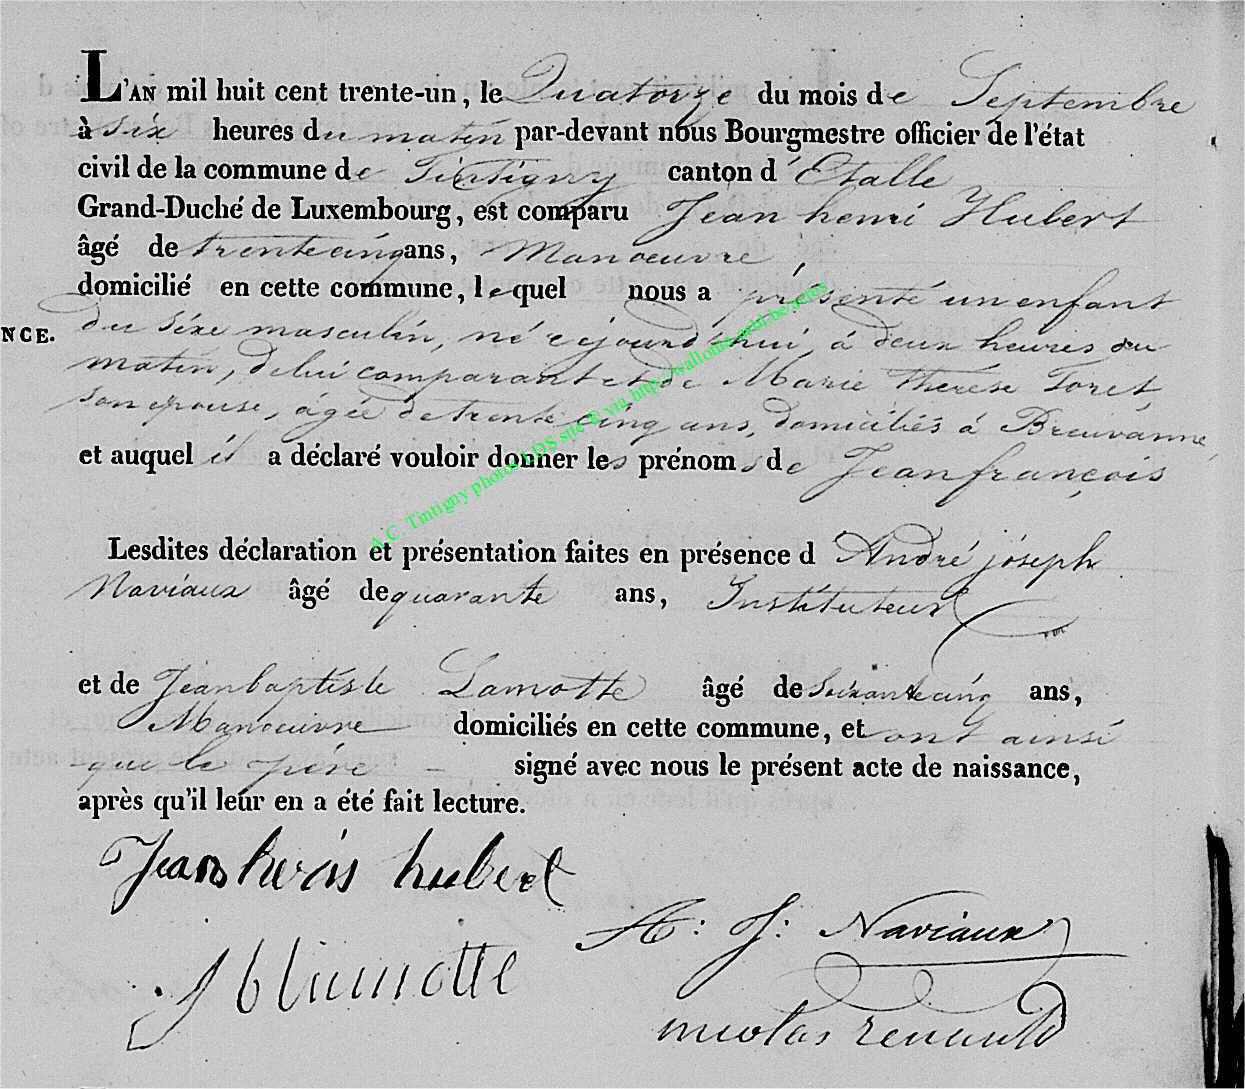 L'AN mil huit cent trente-un, le Quatorze du mois de Septembre
à six heures du matin par-devant nous Bourgmestre officier de l'état
civil de la commune de Tintigny canton d'Etalle
Grand-Duché de Luxembourg, est comparu Jean henri Hubert
âgé de trente cinq ans, Manoeuvre,
domicilié en cette commune, lequel nous a présenté un enfant
NCE.
du séxe masculin, né cejourd'hui, à deux heures du
matin, de lui comparant et de Marie thérèse Toret
son epouse, âgée de trente cinq ans, domiciliés à Breuvanne
et auquel il a déclaré vouloir donner les prénoms de Jean françois
A.C. Tintigny photos LDS site ® via http://wallonia.asbl.be/actes
Lesdites déclaration et présentation faites en présence d'André joseph
Naviaux âgé de quarante ans, Instituteur
et de Jean baptiste Lamotte âgé de Soixante cinq ans,
Manoeuvre domiciliés en cette commune, et ont ainsi
que le père - signé avec nous le présent acte de naissance,
après qu'il leur en a été fait lecture.
Jean heris hubert
A: J: Naviaux
nicolas renauld